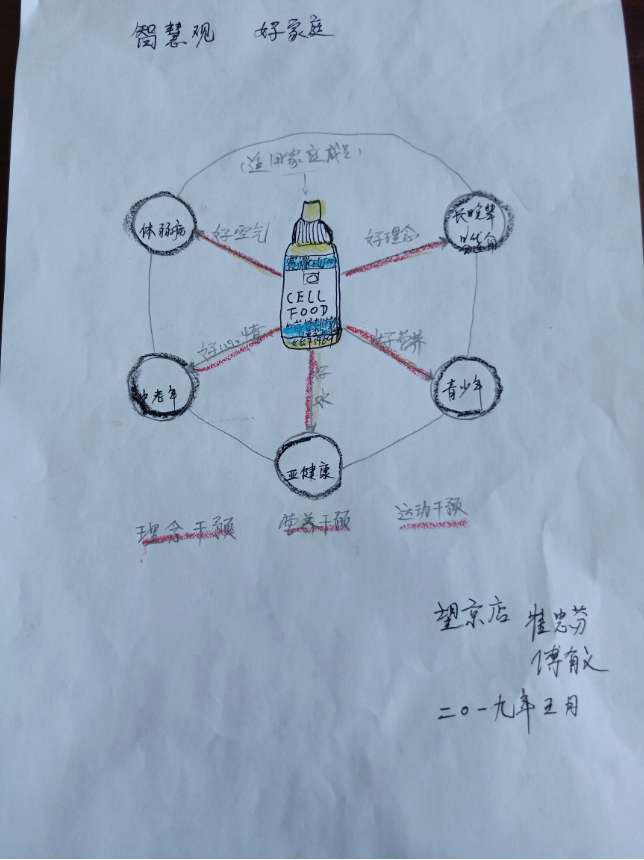 智慧观 好家庭
(适用家庭成员)
体弱病
好空气
好理念
长晚辈
CELL
FOOD
好心情
好营养
好水
中老年
青少年
亚健康
理念干预 营养干预 运动干预
望京店 崔忠芬
傅
二〇一九年五月